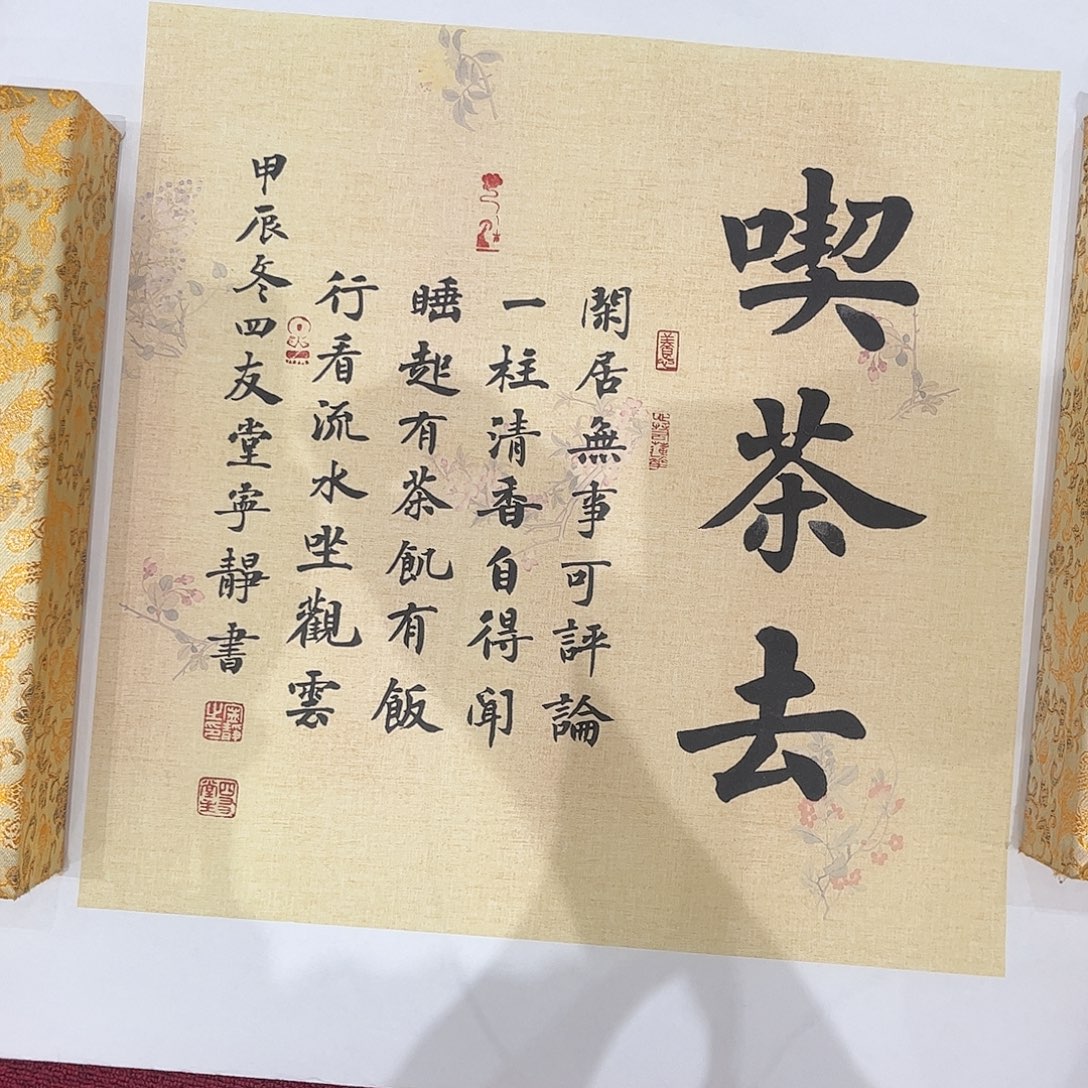 喫茶去
閑居無事可評論
一柱清香自得聞
睡起有茶飢有飯
行看流水坐觀雲
甲辰冬四友堂寧靜書